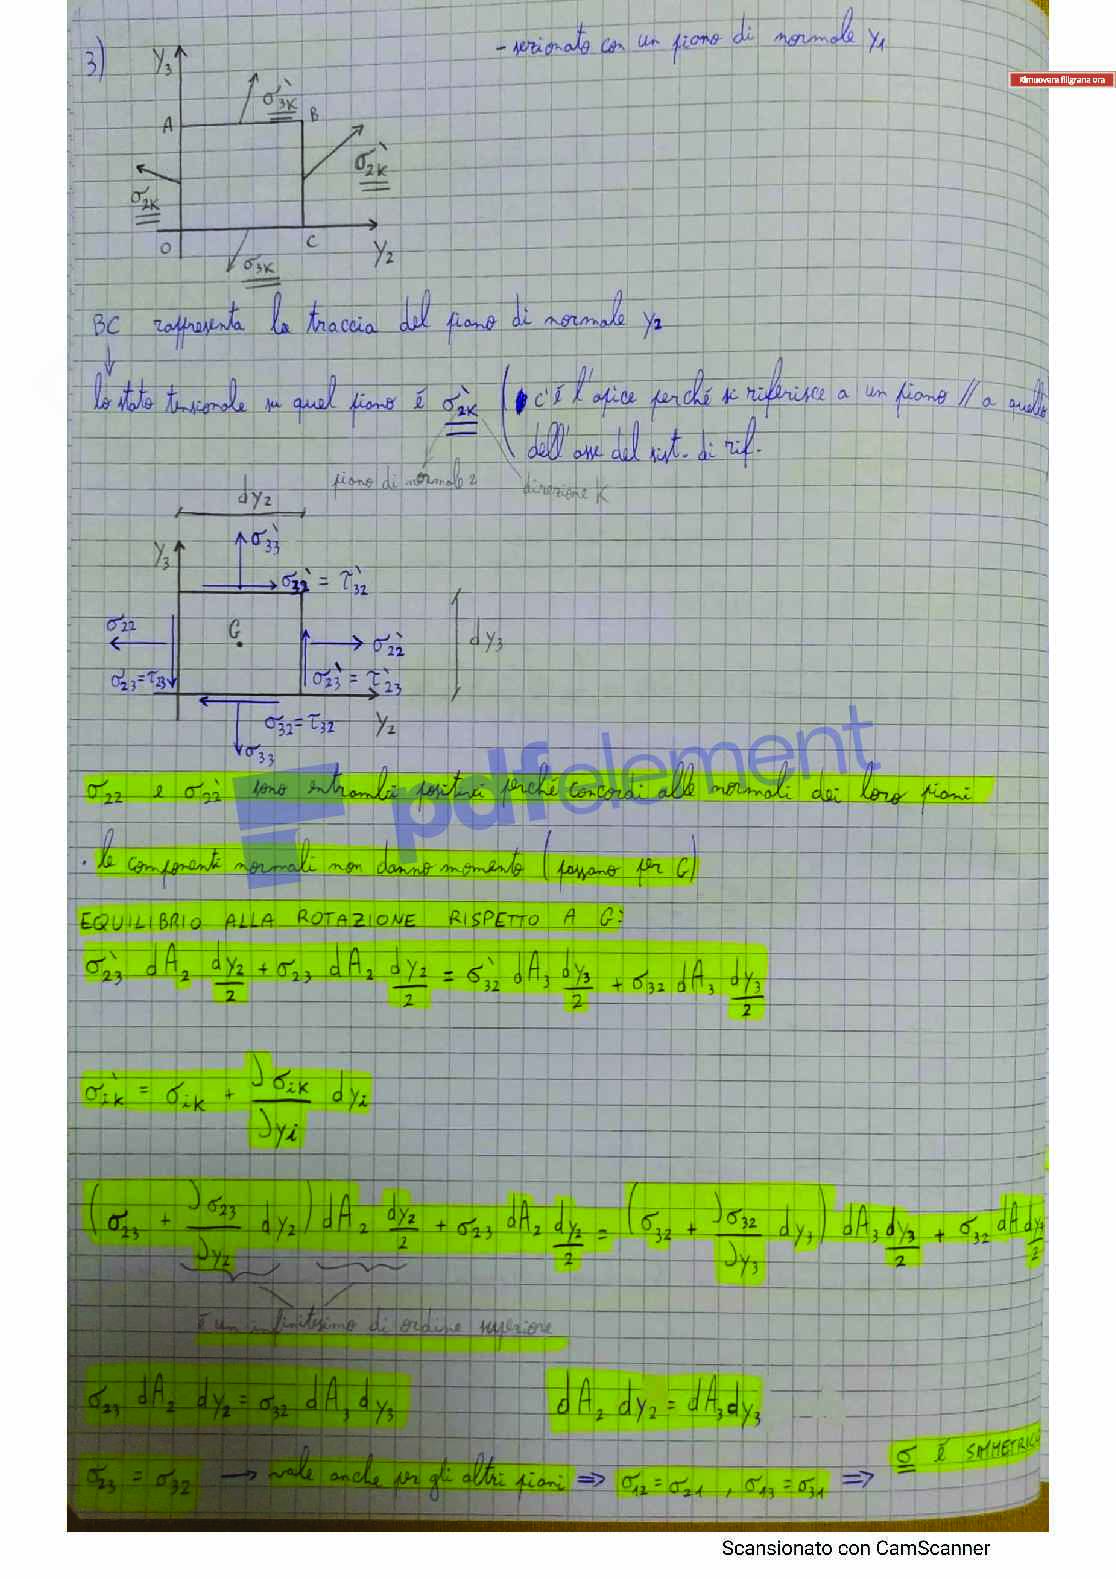 - sezionato con un piano di normale y1
Rimuovere filigrana ora
3)
Y3
σ'3K
A
B
σ'2K
σ2K
O
C
Y2
σ3K
BC rappresenta la traccia del piano di normale y2
lo stato tensionale su quel piano é σ'2K ( c'é l'apice perché si riferisce a un piano // a quello
dell'asse del sist. di rif.
piano di normale 2
direzione K
dy2
Y3
σ'33
σ'32 = τ'32
σ22
G
σ'22
dy3
σ23=τ23
σ'23 = τ'23
σ32=τ32
Y2
σ33
pdfelement
σ22 e σ'22 sono entrambi positivi perché concordi alle normali dei loro piani
. le componenti normali non danno momento (passano per G)
EQUILIBRIO ALLA ROTAZIONE RISPETTO A G:
σ'23 dA2 dy2/2 + σ23 dA2 dy2/2 = σ'32 dA3 dy3/2 + σ32 dA3 dy3/2
σ'iK = σiK + ∂σiK/∂yi dyi
(σ23 + ∂σ23/∂y2 dy2) dA2 dy2/2 + σ23 dA2 dy2/2 = (σ32 + ∂σ32/∂y3 dy3) dA3 dy3/2 + σ32 dA dy3/2
É un infinitesimo di ordine superiore
σ23 dA2 dy2 = σ32 dA3 dy3 dA2 dy2 = dA3 dy3
σ É SIMMETRICA
σ23 = σ32 → vale anche per gli altri piani ⇒ σ12 = σ21 , σ13 = σ31 ⇒
Scansionato con CamScanner